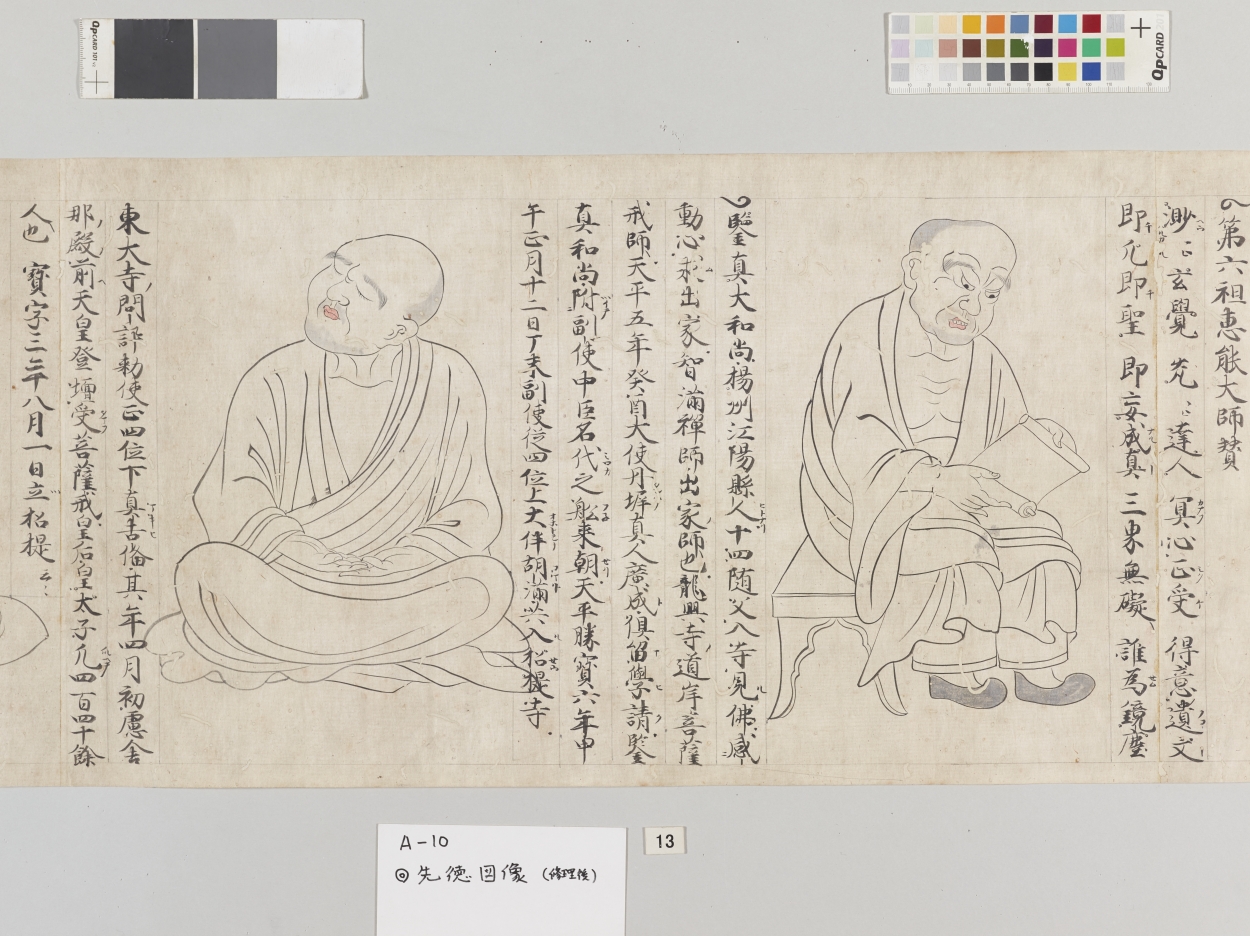 第六祖惠能大師賛
渺〻玄覺 茫〻達人 冥心正受 得意遺文
即凡即聖 即妄成真 三界無礙 誰為鏡塵
鑒真大和尚楊州江陽縣人十四随父入寺見佛感
動心求出家智滿禪師出家師也龍興寺道岸菩薩
戒師天平五年癸酉大使丹墀真人廣成俱留學請鑒
真和尚附副使中臣名代之舩来朝天平勝寶六年甲
午正月十二日丁未副使従四位上大伴胡滿共入招提寺
東大寺問訊勅使正四位下真吉俻其年四月初盧舎
那殿前天皇登壇受菩薩戒皇后皇太子凡四百四十餘
人也 寶字三年八月一日立招提云〻
A-10
◎先徳図像(修理後)
13
OpCARD 101
OpCARD